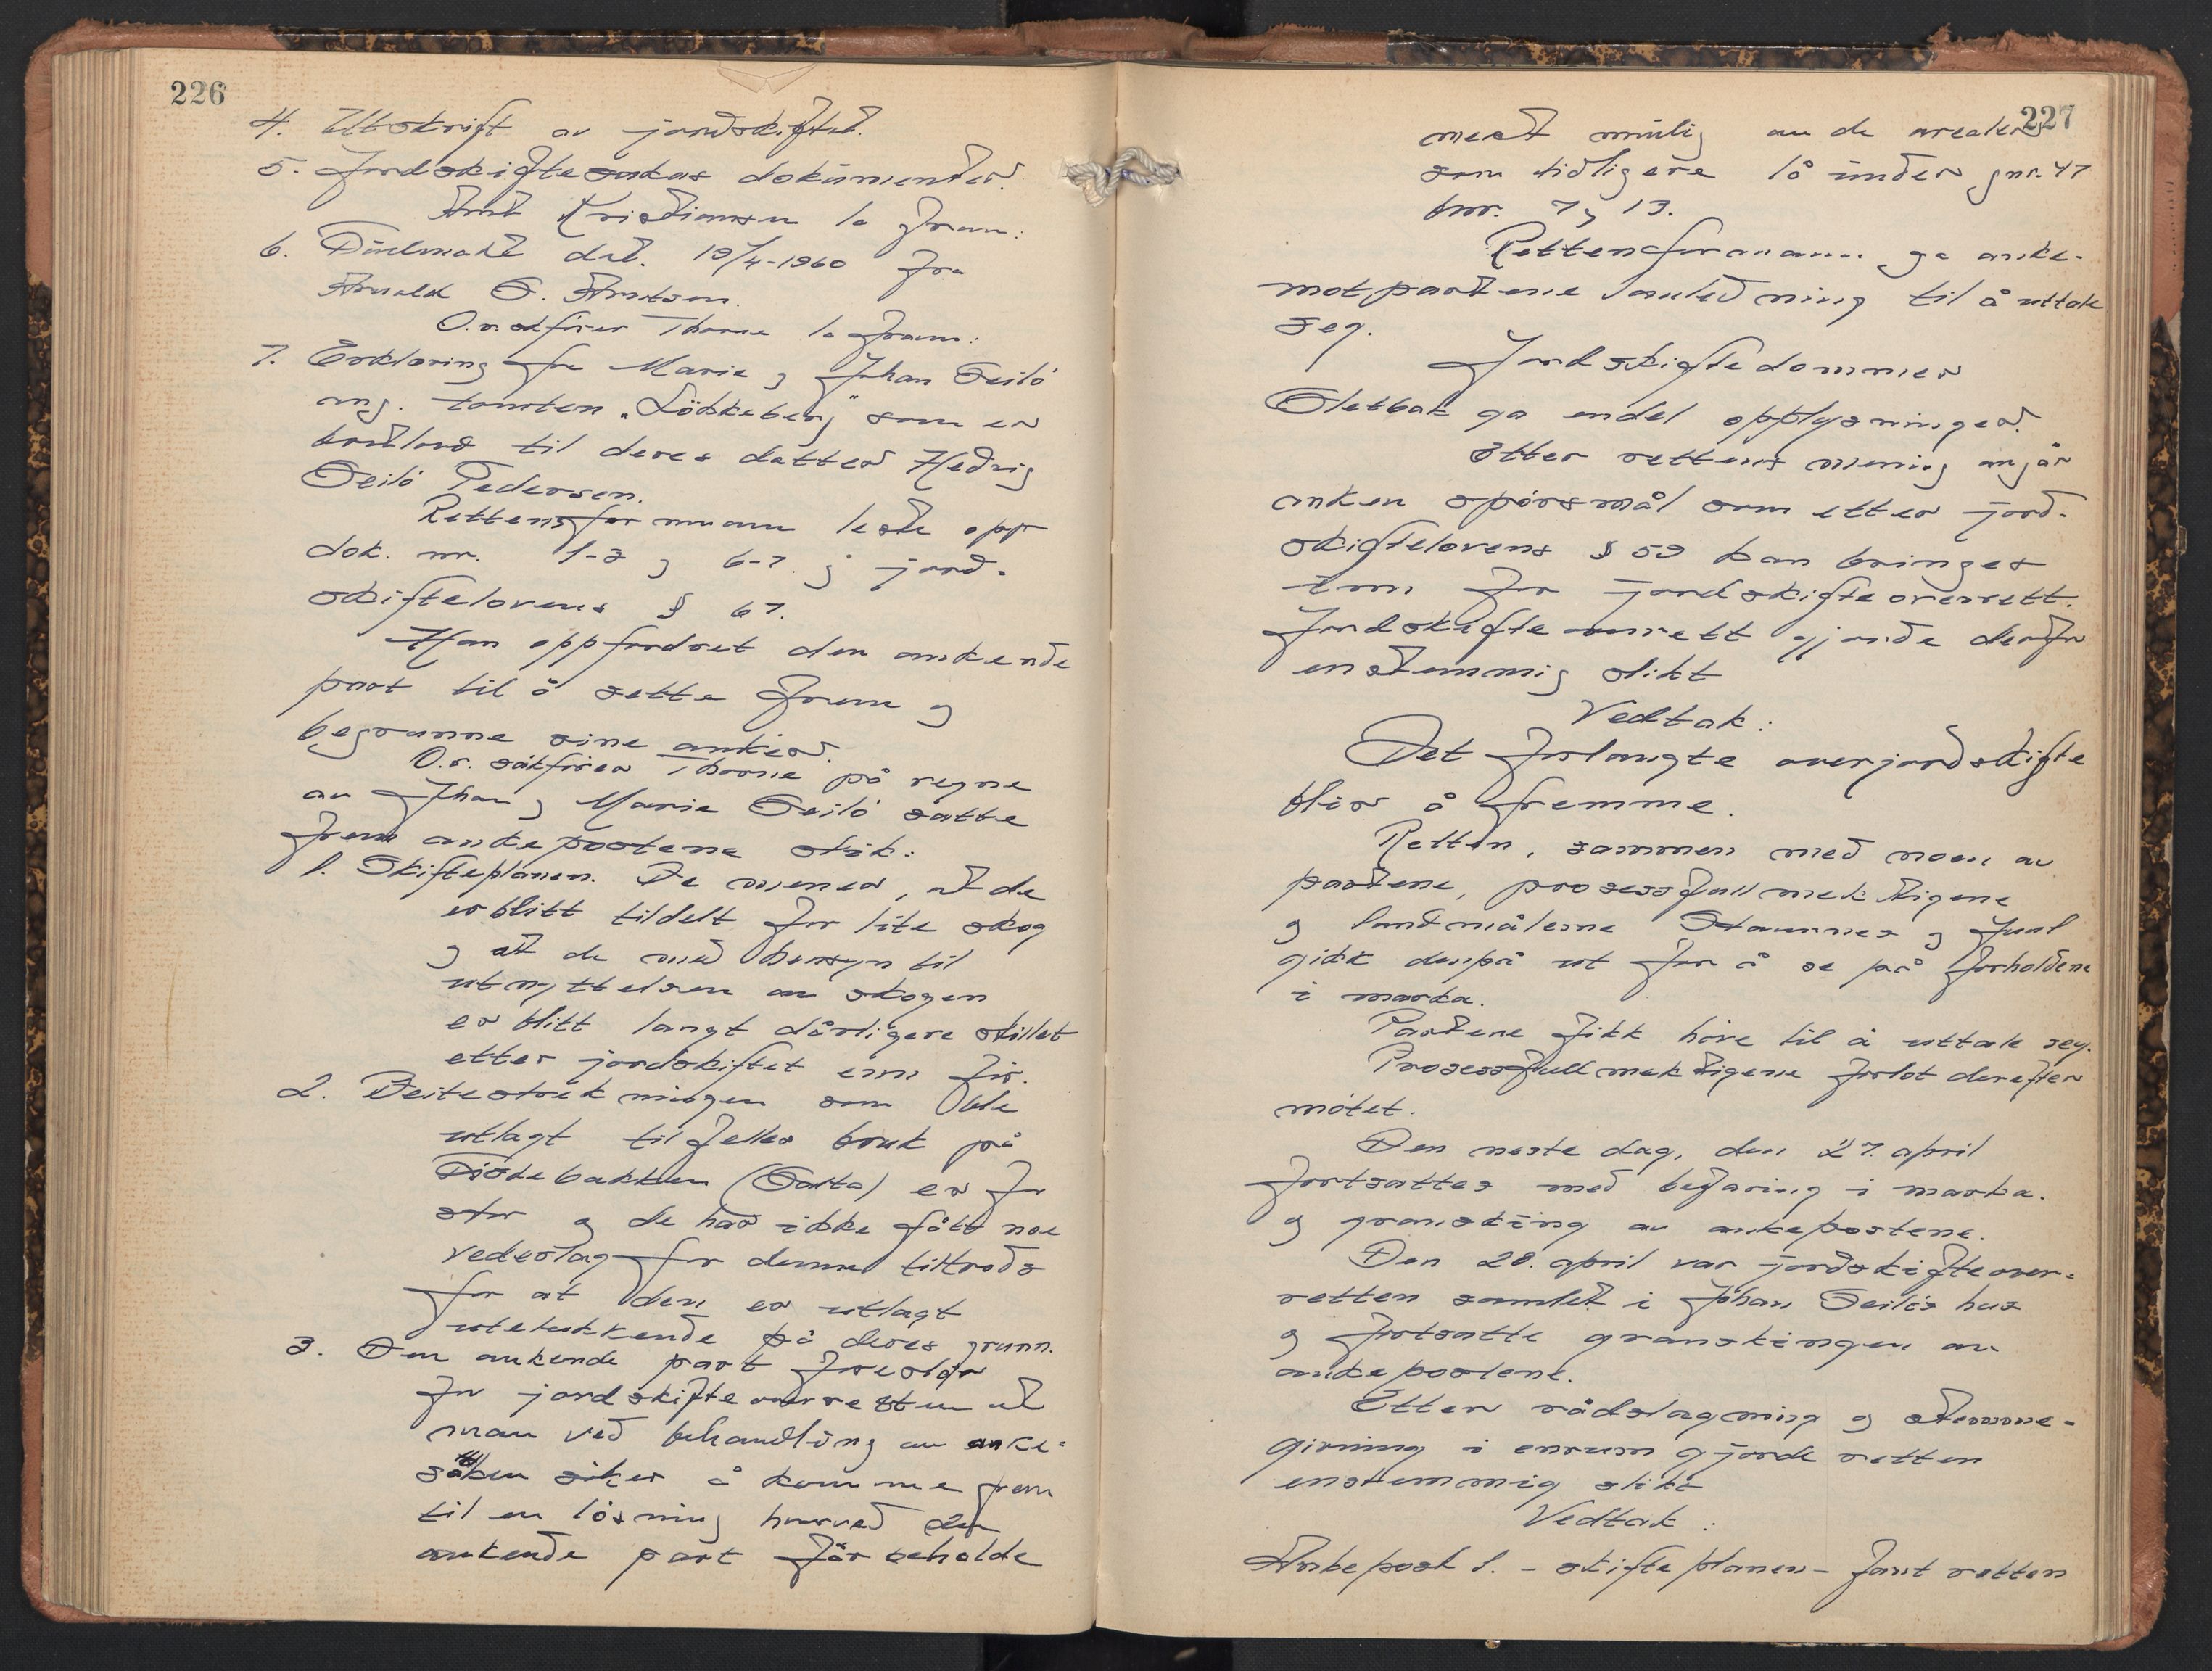 226
4. Utskrift av jordskiftet.
5. Jordskiftesakas dokumenter.
Arnt Kristiansen la fram:
6. Fullmakt dat. 19/4-1960 fra
Arnold O. Arntsen.
O.r.sakfører Thorne la fram:
7. Erklæring fra Marie og Johan Seilö
ang. tomten "Lökkeberg" som er
bortlovd til deres datter Hedvig
Seilö Pedersen.
Rettensformann leste opp
dok. nr. 1-3 og 6-7. og jord-
skiftelovens § 67.
Han oppfordret den ankende
part til å sette frem og
begrunne sine anker.
O.r. sakförer Thorne på vegne
av Johan og Marie Seilö satte
frem ankepostene slik:
1. Skifteplanen. De mener, at de
er blitt tildelt for lite skog
og at de med hensyn til
utnyttelsen av skogen
er blitt langt dårligere stillet
etter jordskiftet enn för.
2. Beitestrekningen som ble
utlagt til felles bruk på
(Salta) er for
stor og de har ikke fått noe
vederlag for denne tiltrods
for at den er utlagt
utelukkende på deres grunn.
3. Den ankende part foreslår
for jordskifteoverretten at
man ved behandling av anke-
saken söker å komme frem
til en lösning hvorved den
ankende part får beholde
227
mest mulig av de arealer
som tidligere lå under gnr. 47
bnr. 7 og 13.
Rettensformann ga anke-
motpartene anledning til å uttale
seg.
Jordskiftedommer
Sletbak ga endel opplysninger.
Etter rettens mening angår
anken spörsmål som etter jord-
skiftelovens § 59 kan bringes
inn for jordskifteoverrett.
Jordskifteoverrett gjorde derfor
enstemmig slikt
Vedtak:
Det forlangte overjordskifte
blir å fremme.
Retten, sammen med noen av
partene, prosessfullmektigene
og landmålerne Staurnes og Juul
gikk derpå ut for å se på forholdene
i marka.
Partene fikk höve til å uttale seg.
Prosessfullmektigene forlot derefter
mötet.
Den neste dag, den 27. april
fortsattes med befaring i marka.
og gransking av ankepostene.
Den 28. april var jordskifteover-
retten samlet i Johan Seilös hus
og fortsatte granskingen av
ankepostene.
Etter rådslagning og stemme-
givning i enrum gjorde retten
enstemmig slikt
Vedtak:
Ankepost 1. - skifteplanen - fant retten